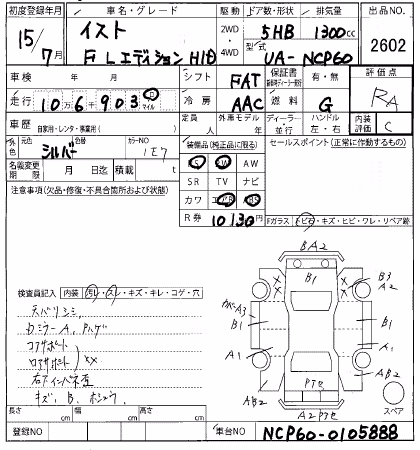 初度登録年月 車名・グレード 駆動 ドア数・形状 排気量 出品NO.
15/7月 イスト 2WD 5HB 1300cc 2602
F Lエディション HID 4WD 型式 UA-NCP60
車検 年 月 シフト FAT 保証書 有・無 評価点
走行 10万6千903 km マイル 冷房 AAC 燃料 G RA
車歴 自家用・レンタ・事業用( ) 定員 人 外車モデル 年 ディーラー・並行 ハンドル 左・右 内装評価 C
外色 元色 シルバー 色替 カラーNO 1E7 装備品(純正品に限る) セールスポイント(正常に作動するもの)
名義変更期限 月 日迄 積載 t PS PW AW
SR TV ナビ
注意事項(欠品・修復・不具合箇所および状態) カワ エアB ABS
R券 10130円 Fガラス トビ石・キズ・ヒビ・ワレ・リペア跡
BA2
B1 B3 A2
検査員記入 内装 汚レ・スレ・キズ・キレ・コゲ・穴
天バリシミ A3 B1 B1
Dミラー A、Pハゲ
コアサポート A1 A1
ロアサポート XX
右F インパネ歪 Pアセ AB2
キズ、B、ホシュウ AB2 A2Pアセ スペア
長さ cm 幅 cm 高さ cm
登録NO 車台NO NCP60-0105888